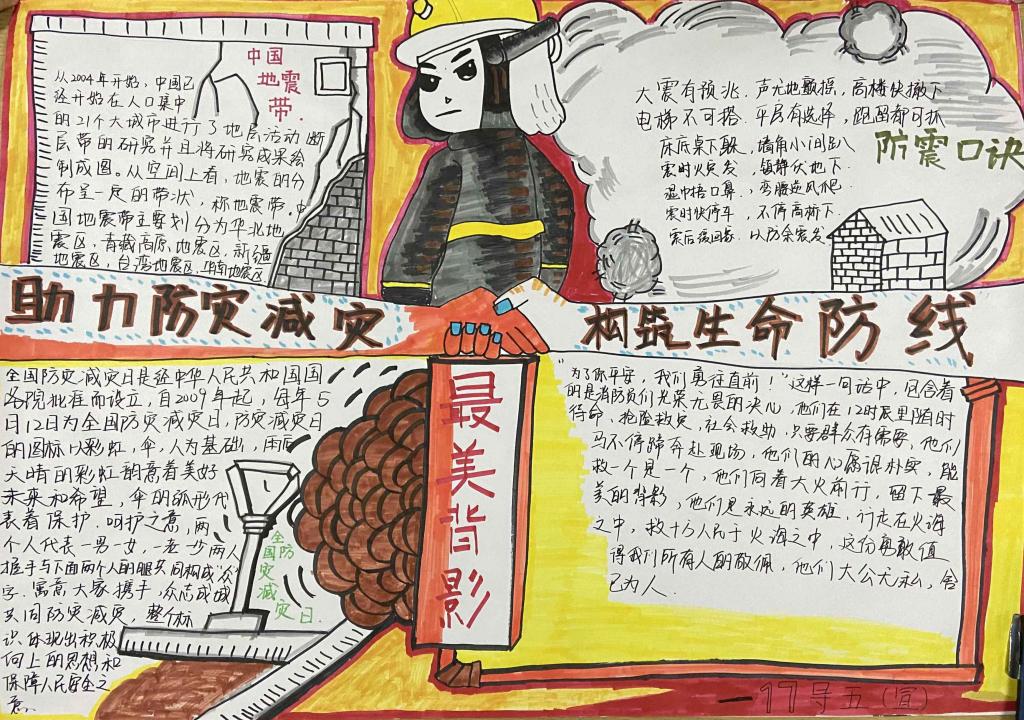 中国
地震
带.
从2004年开始，中国已
经开始在人口集中
的21个大城市进行了地层活动断
层带的研究并且将研究成果绘
制成图。从空间上看，地震的分
布呈一定的带状，称地震带.中
国地震带主要划分为华北地
震区，青藏高原地震区，新疆
地震区，台湾地震区，华南地震区
大震有预兆.声光地颤摇，高楼快撤下
电梯不可搭.平房有选择，跑留都可抓
床底桌下趴，墙角小间趴
震时火灾发，镇静伏地下.
湿巾捂口鼻，弯腰逆风爬.
震时快停车，不停高桥下.
震后缓回家.以防余震发
防震口诀
助力防灾减灾
构筑生命防线
全国防灾减灾日是经中华人民共和国国
务院批准而设立，自2009年起，每年5
月12日为全国防灾减灾日，防灾减灾日
的图标以彩虹，伞，人为基础，雨后
天晴的彩虹韵意着美好
未来和希望，伞的弧形代
表着保护，呵护之意，两
个人代表一男一女，一老一少两人
握手与下面两个人的腿共同构成"众"
字.寓意大家携手，众志成城
共同防灾减灾，整体标
识体现出积极
向上的思想和
保障人民安全之
意、
全
国防
灾
减
灾日.
最美背影
"为了你平安，我们勇往直前！"这样一句话中，包含着
的是消防员们光荣无畏的决心，他们在12时辰里随时
待命、抢险救灾，社会救助，只要群众有需要，他们
马不停蹄奔赴现场，他们的心愿很朴实，能
救一个是一个，他们向着大火前行，留下最
美的背影，他们是永远的英雄，行走在火海
之中，救十万人民于火海之中，这份勇敢值
得我们所有人的敬佩，他们大公无私，舍
己为人.
一17号五(宣)